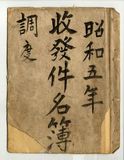 昭和五年
收發件名簿
調度